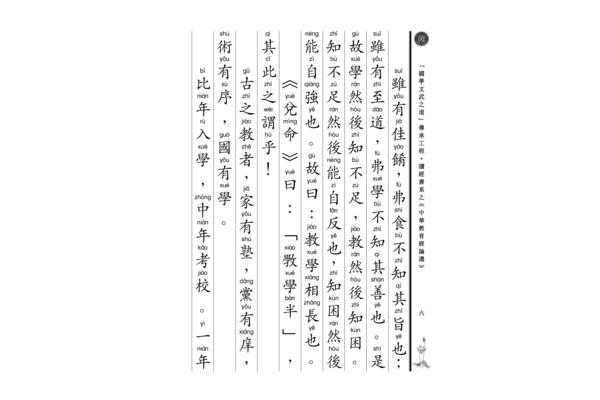 「國學文武之道」傳承工程·讀經書系之《中華教育經論選》 六
雖有佳餚,弗食不知其旨也;
雖有至道,弗學不知其善也。是
故學然後知不足,教然後知困。
知不足然後能自反也,知困然後
能自強也。故曰:教學相長也。
《兌命》曰:「斆學半」,
其此之謂乎!
古之教者,家有塾,黨有庠,
術有序,國有學。
比年入學,中年考校。一年